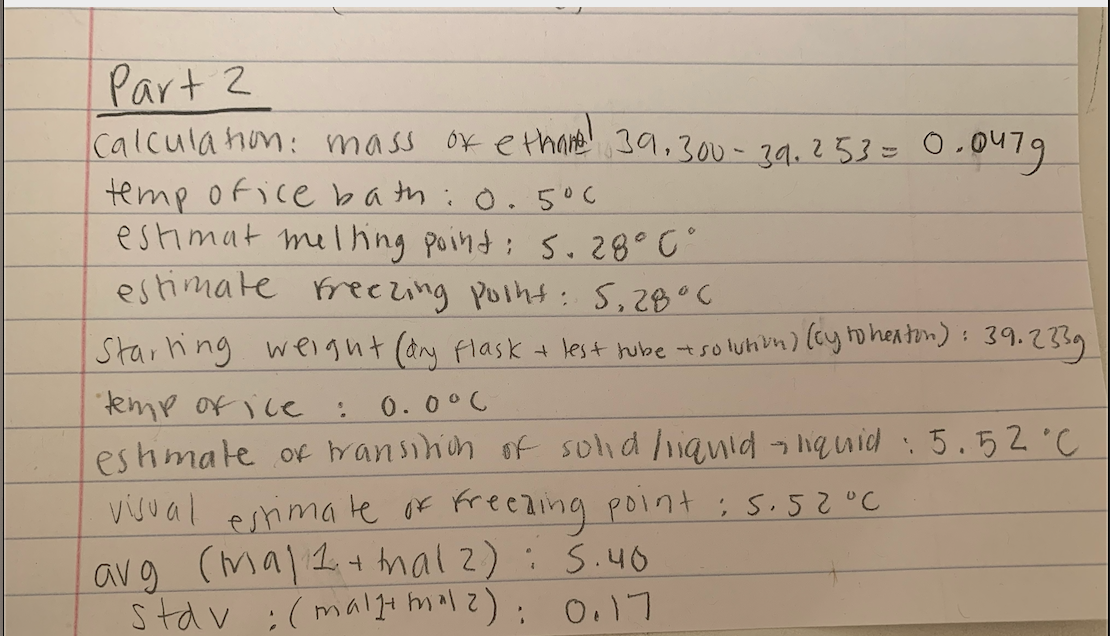 Part 2
calculation: mass of ethanol 39.300 - 39.253 = 0.047g
temp of ice bath : 0.5°C
estimat melting point : 5.28°C°
estimate freezing point : 5.28°C
Starting weight (dry flask + test tube + solution) : 39.233g
temp of ice : 0.0°C
estimate of transition of solid/liquid → liquid : 5.52°C
visual estimate of freezing point : 5.52°C
avg (trial 1 + trial 2) : 5.40
stdv : (trial 1 + trial 2) : 0.17